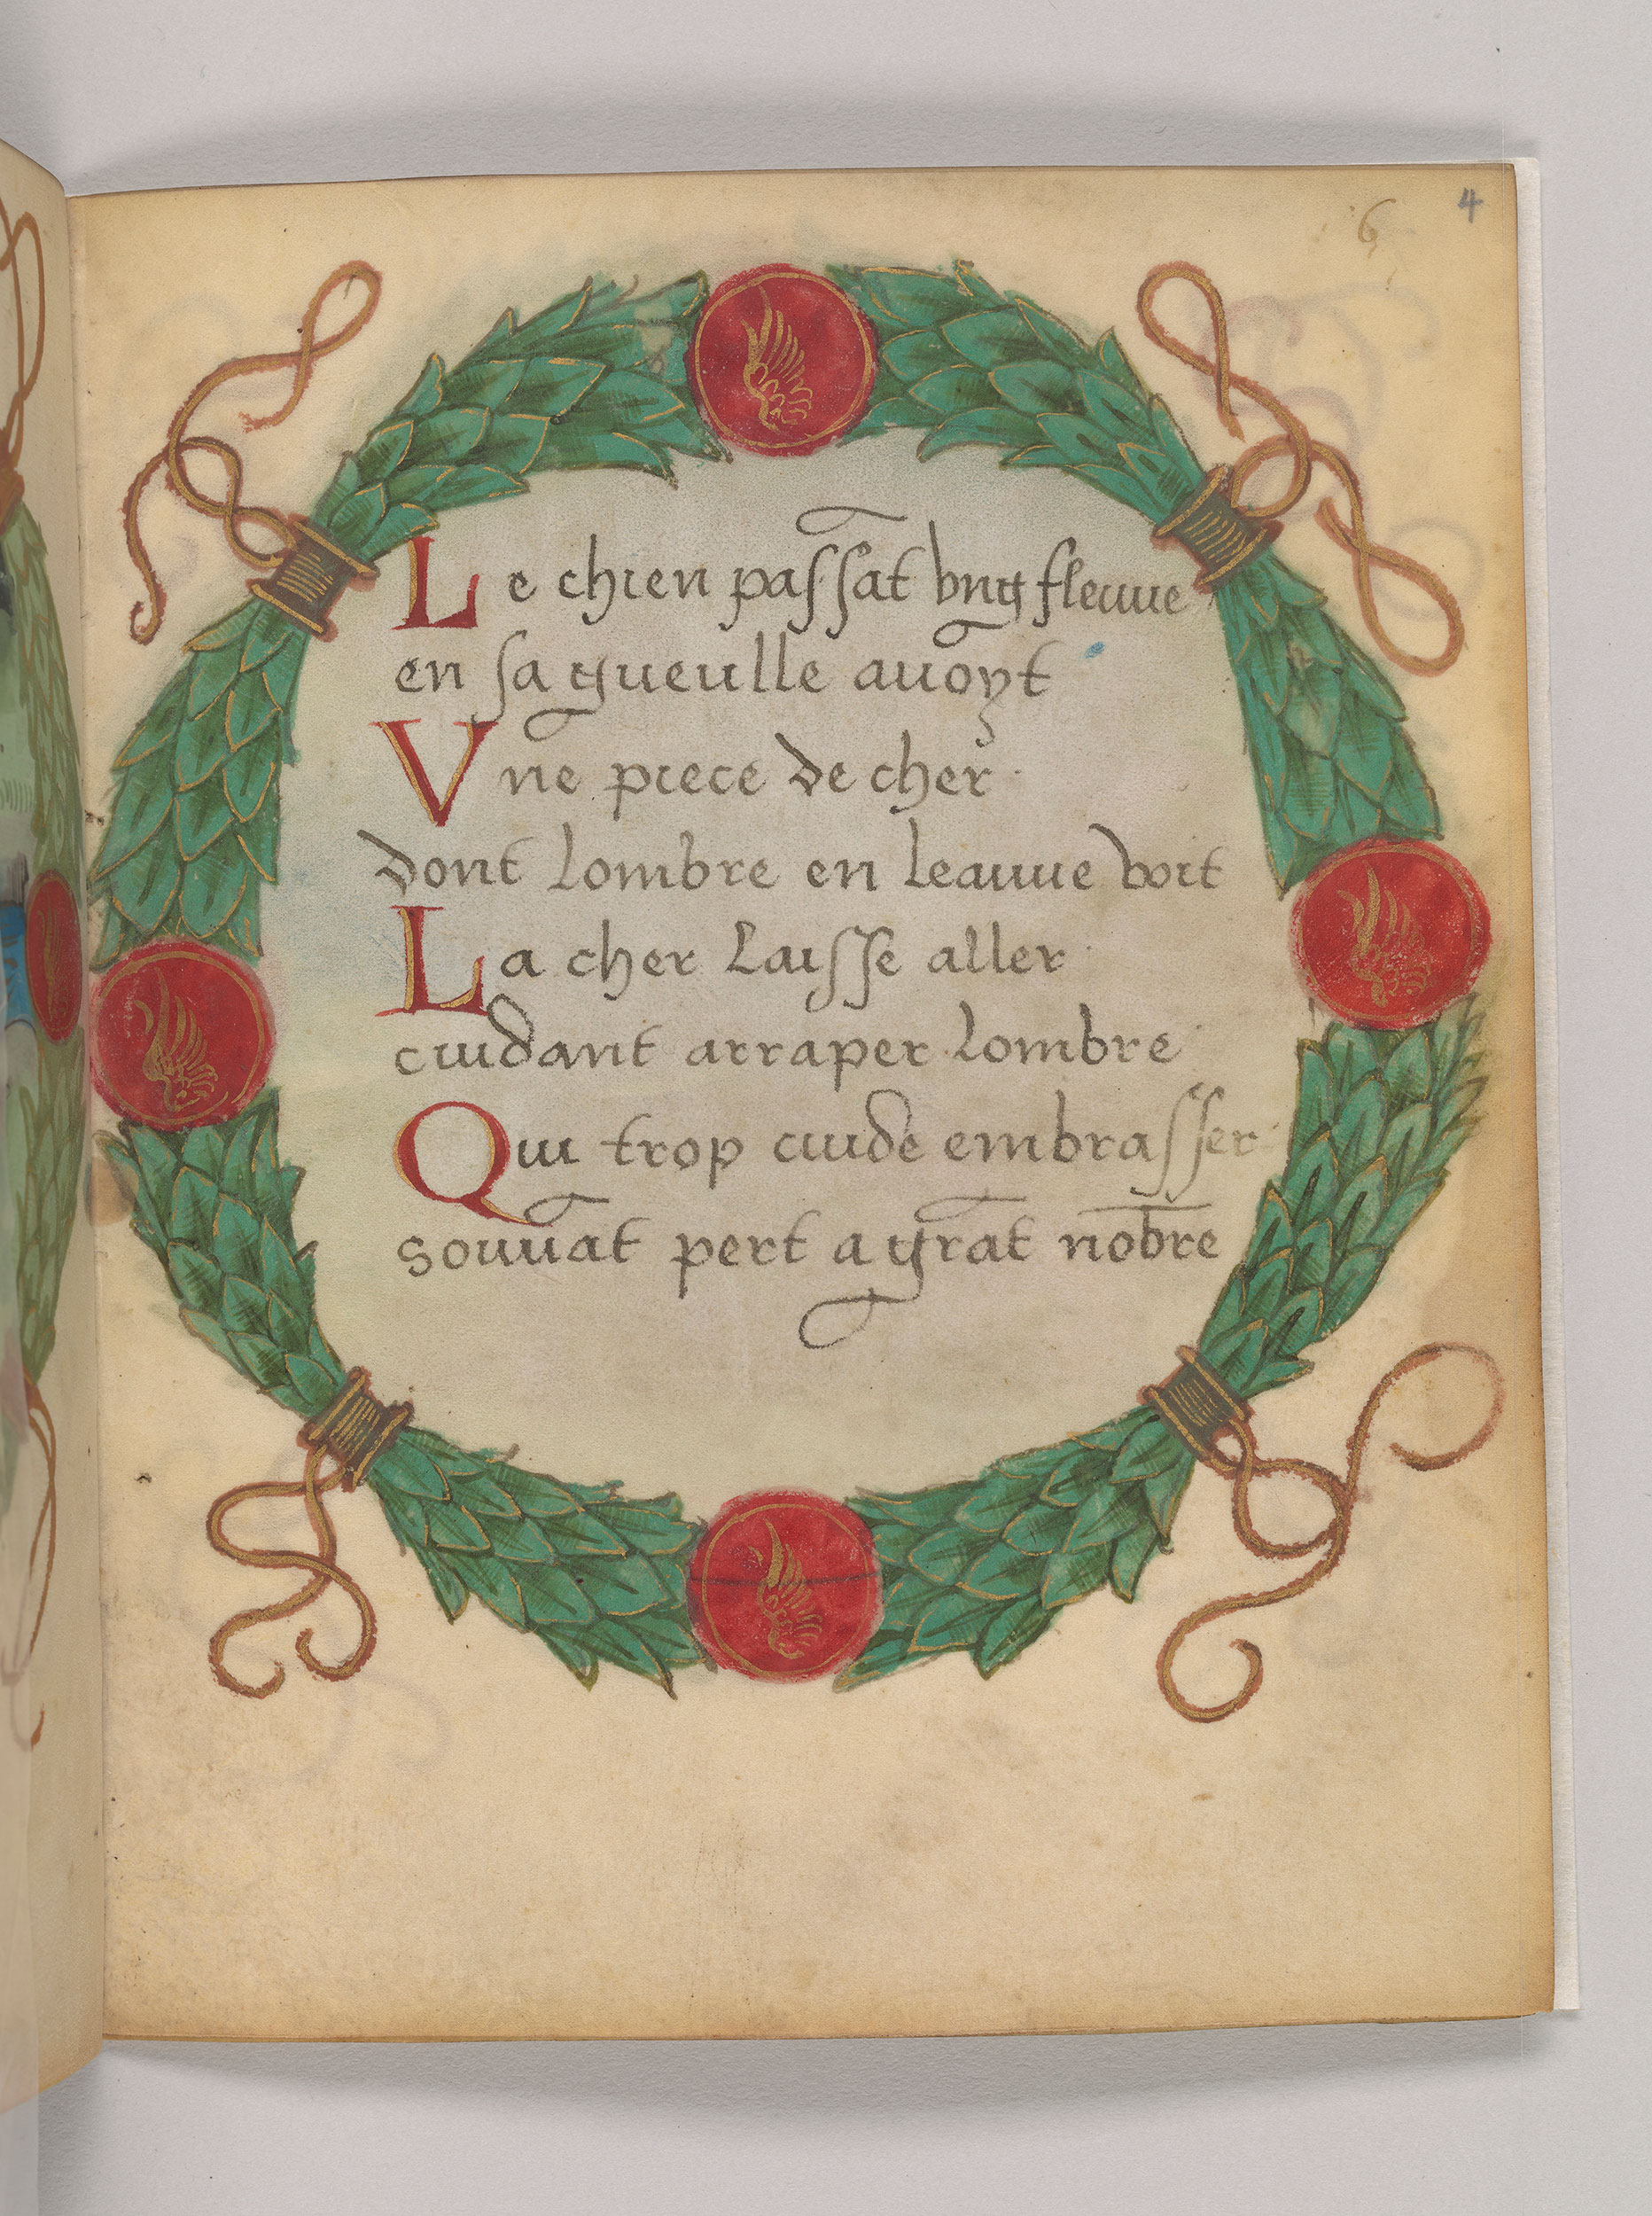 6 4
Le chien passāt vng fleuue
en sa gueulle auoyt
Vne piece de cher
dont lombre en leauue voit
La cher laisse aller
cuidant arraper lombre
Qui trop cuide embrasser
souuāt pert a grāt nōbre